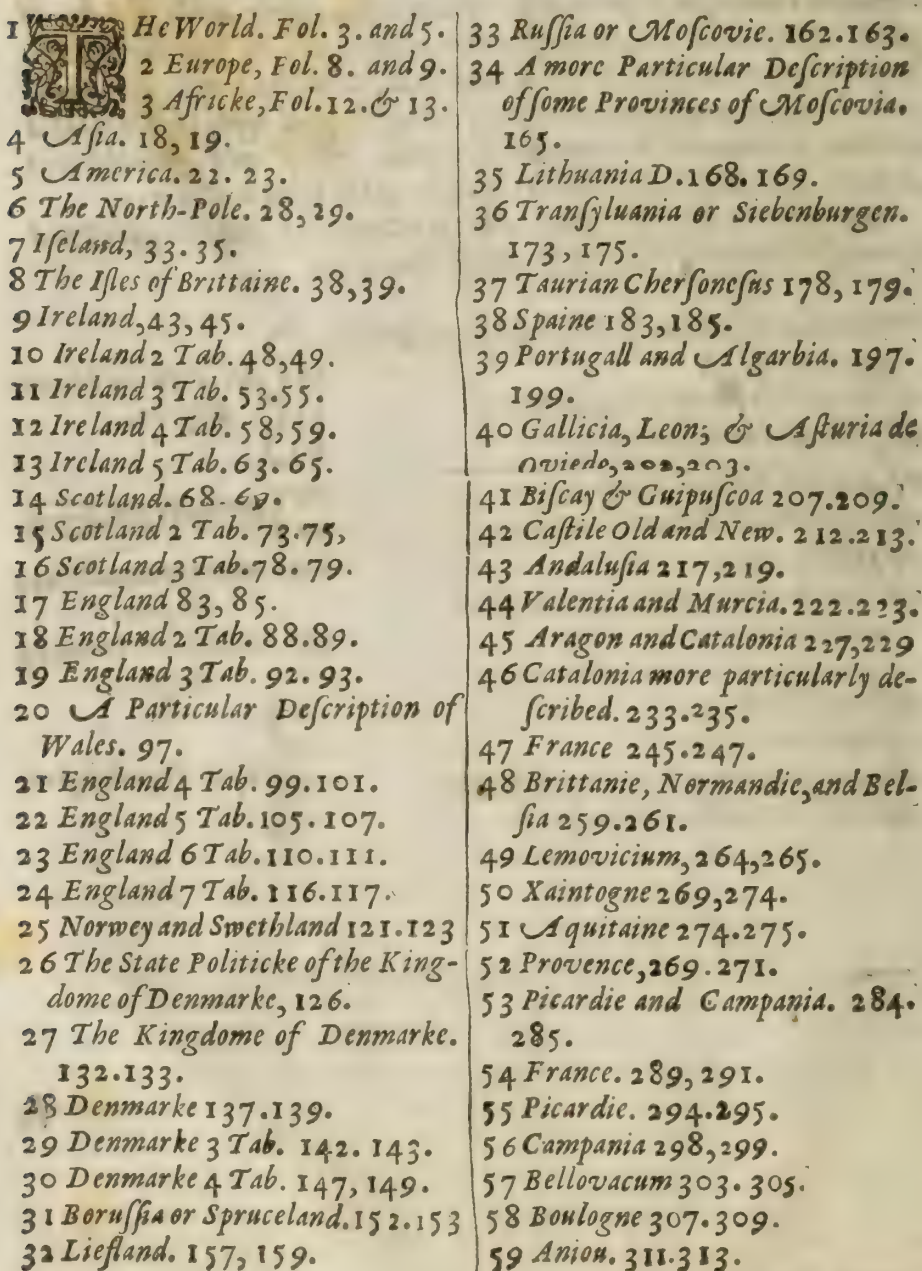 1 THe World. Fol. 3. and 5.
2 Europe, Fol. 8. and 9.
3 Africke, Fol. 12. & 13.
4 Aſia. 18, 19.
5 America. 22. 23.
6 The North-Pole. 28, 29.
7 Iſeland, 33. 35.
8 The Iſles of Brittaine. 38, 39.
9 Ireland, 43, 45.
10 Ireland 2 Tab. 48, 49.
11 Ireland 3 Tab. 53. 55.
12 Ireland 4 Tab. 58, 59.
13 Ireland 5 Tab. 63. 65.
14 Scotland. 68. 69.
15 Scotland 2 Tab. 73. 75,
16 Scotland 3 Tab. 78. 79.
17 England 83, 85.
18 England 2 Tab. 88. 89.
19 England 3 Tab. 92. 93.
20 A Particular Deſcription of
Wales. 97.
21 England 4 Tab. 99. 101.
22 England 5 Tab. 105. 107.
23 England 6 Tab. 110. 111.
24 England 7 Tab. 116. 117.
25 Norwey and Swethland 121. 123
26 The State Politicke of the King-
dome of Denmarke, 126.
27 The Kingdome of Denmarke.
132. 133.
28 Denmarke 137. 139.
29 Denmarke 3 Tab. 142. 143.
30 Denmarke 4 Tab. 147, 149.
31 Boruſſia or Spruceland. 152. 153
32 Liefland. 157, 159.
33 Ruſſia or Moſcovie. 162. 163.
34 A more Particular Deſcription
of ſome Provinces of Moſcovia.
165.
35 Lithuania D. 168. 169.
36 Tranſyluania or Siebenburgen.
173, 175.
37 Taurian Cherſoneſus 178, 179.
38 Spaine 183, 185.
39 Portugall and Algarbia. 197.
199.
40 Gallicia, Leon; & Aſturia de
Oviedo, 202, 203.
41 Biſcay & Guipuſcoa 207. 209.
42 Caſtile Old and New. 212. 213.
43 Andaluſia 217, 219.
44 Valentia and Murcia. 222. 223.
45 Aragon and Catalonia 227, 229
46 Catalonia more particularly de-
ſcribed. 233. 235.
47 France 245. 247.
48 Brittanie, Normandie, and Bel-
ſia 259. 261.
49 Lemovicium, 264, 265.
50 Xaintogne 269, 274.
51 Aquitaine 274. 275.
52 Provence, 269. 271.
53 Picardie and Campania. 284.
285.
54 France. 289, 291.
55 Picardie. 294. 295.
56 Campania 298, 299.
57 Bellovacum 303. 305.
58 Boulogne 307. 309.
59 Aniou. 311. 313.